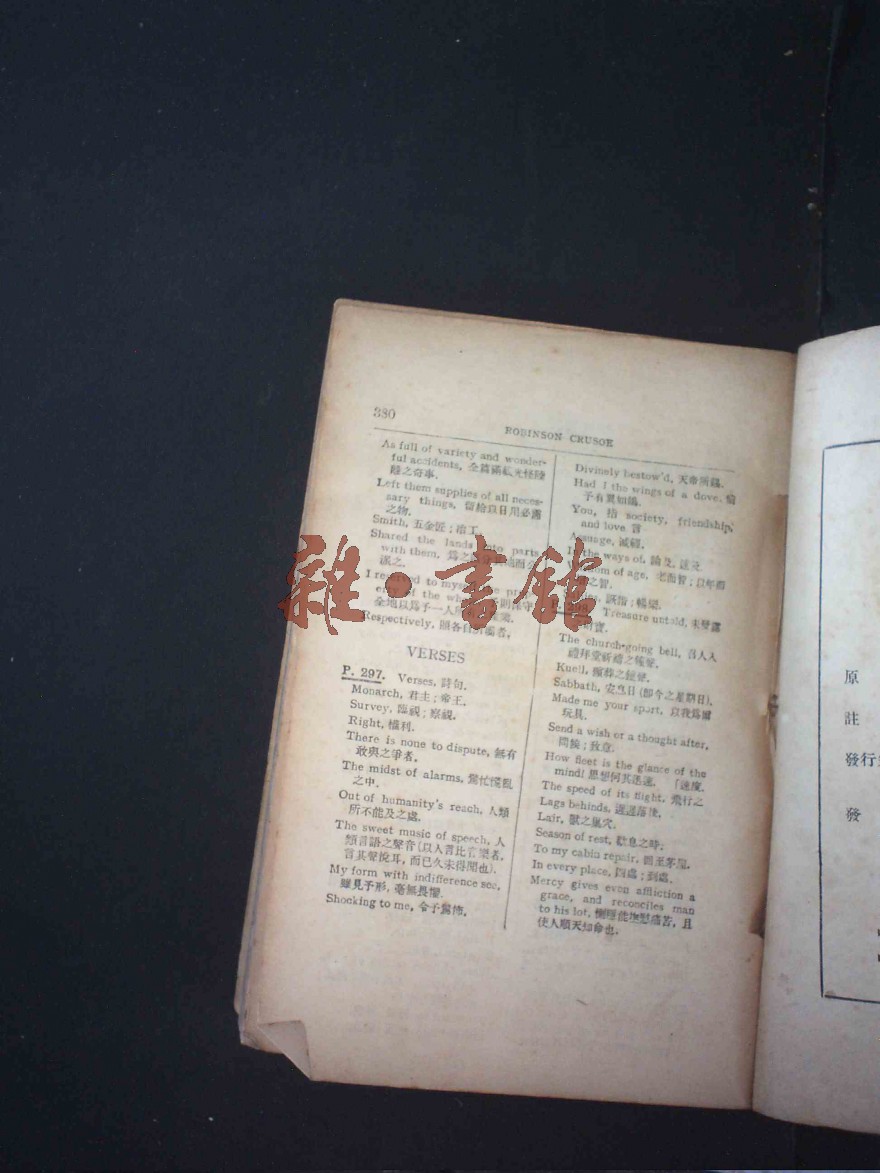 380
ROBINSON CRUSOE
As full of variety and wonder-
ful accidents, 全篇
之奇事.
Left them supplies of all neces-
sary things, 留給以日用必需
之物.
Smith, 五金匠；冶工.
Shared the lands into parts
with them, 爲之
I reserved to myself the
of the
全地以爲予一人
Respectively, 顧各自
VERSES
P. 297. Verses, 詩句.
Monarch, 君主；帝王.
Survey, 臨視；察視.
Right, 權利.
There is none to dispute, 無有
敢與之爭者.
The midst of alarms, 驚忙慌亂
之中.
Out of humanity's reach, 人類
所不能及之處.
The sweet music of speech, 人
類言語之聲音(以人言比音樂者,
言其聲悅耳, 而已久未得聞也).
My form with indifference see,
雖見予形, 毫無畏懼.
Shocking to me, 令予驚怖.
Divinely bestow'd, 天帝所錫.
Had I the wings of a dove,
予有翼如鴿.
You, 指 society, friendship,
and love 言.
Assuage, 減輕.
In the ways of, 論及
Wisdom of age, 老而智；以年而
之智.
P. 298. Treasure untold, 未發露
財寶.
The church-going bell, 召人入
禮拜堂祈禱之鐘聲.
Knell, 殯葬之鐘聲.
Sabbath, 安息日(即今之星期日).
Made me your sport, 以我爲爾
玩具.
Send a wish or a thought after,
問候；致意.
How fleet is the glance of the
mind! 思想何其迅速. 「速度.
The speed of its flight, 飛行之
Lags behinds, 遲遲落後.
Lair, 獸之巢穴.
Season of rest, 歇息之時.
To my cabin repair, 回至茅屋.
In every place, 四處；到處.
Mercy gives even affliction a
grace, and reconciles man
to his lot, 惻隱能撫慰痛苦, 且
使人順天知命也.
原
註
發行
發
雜·書館